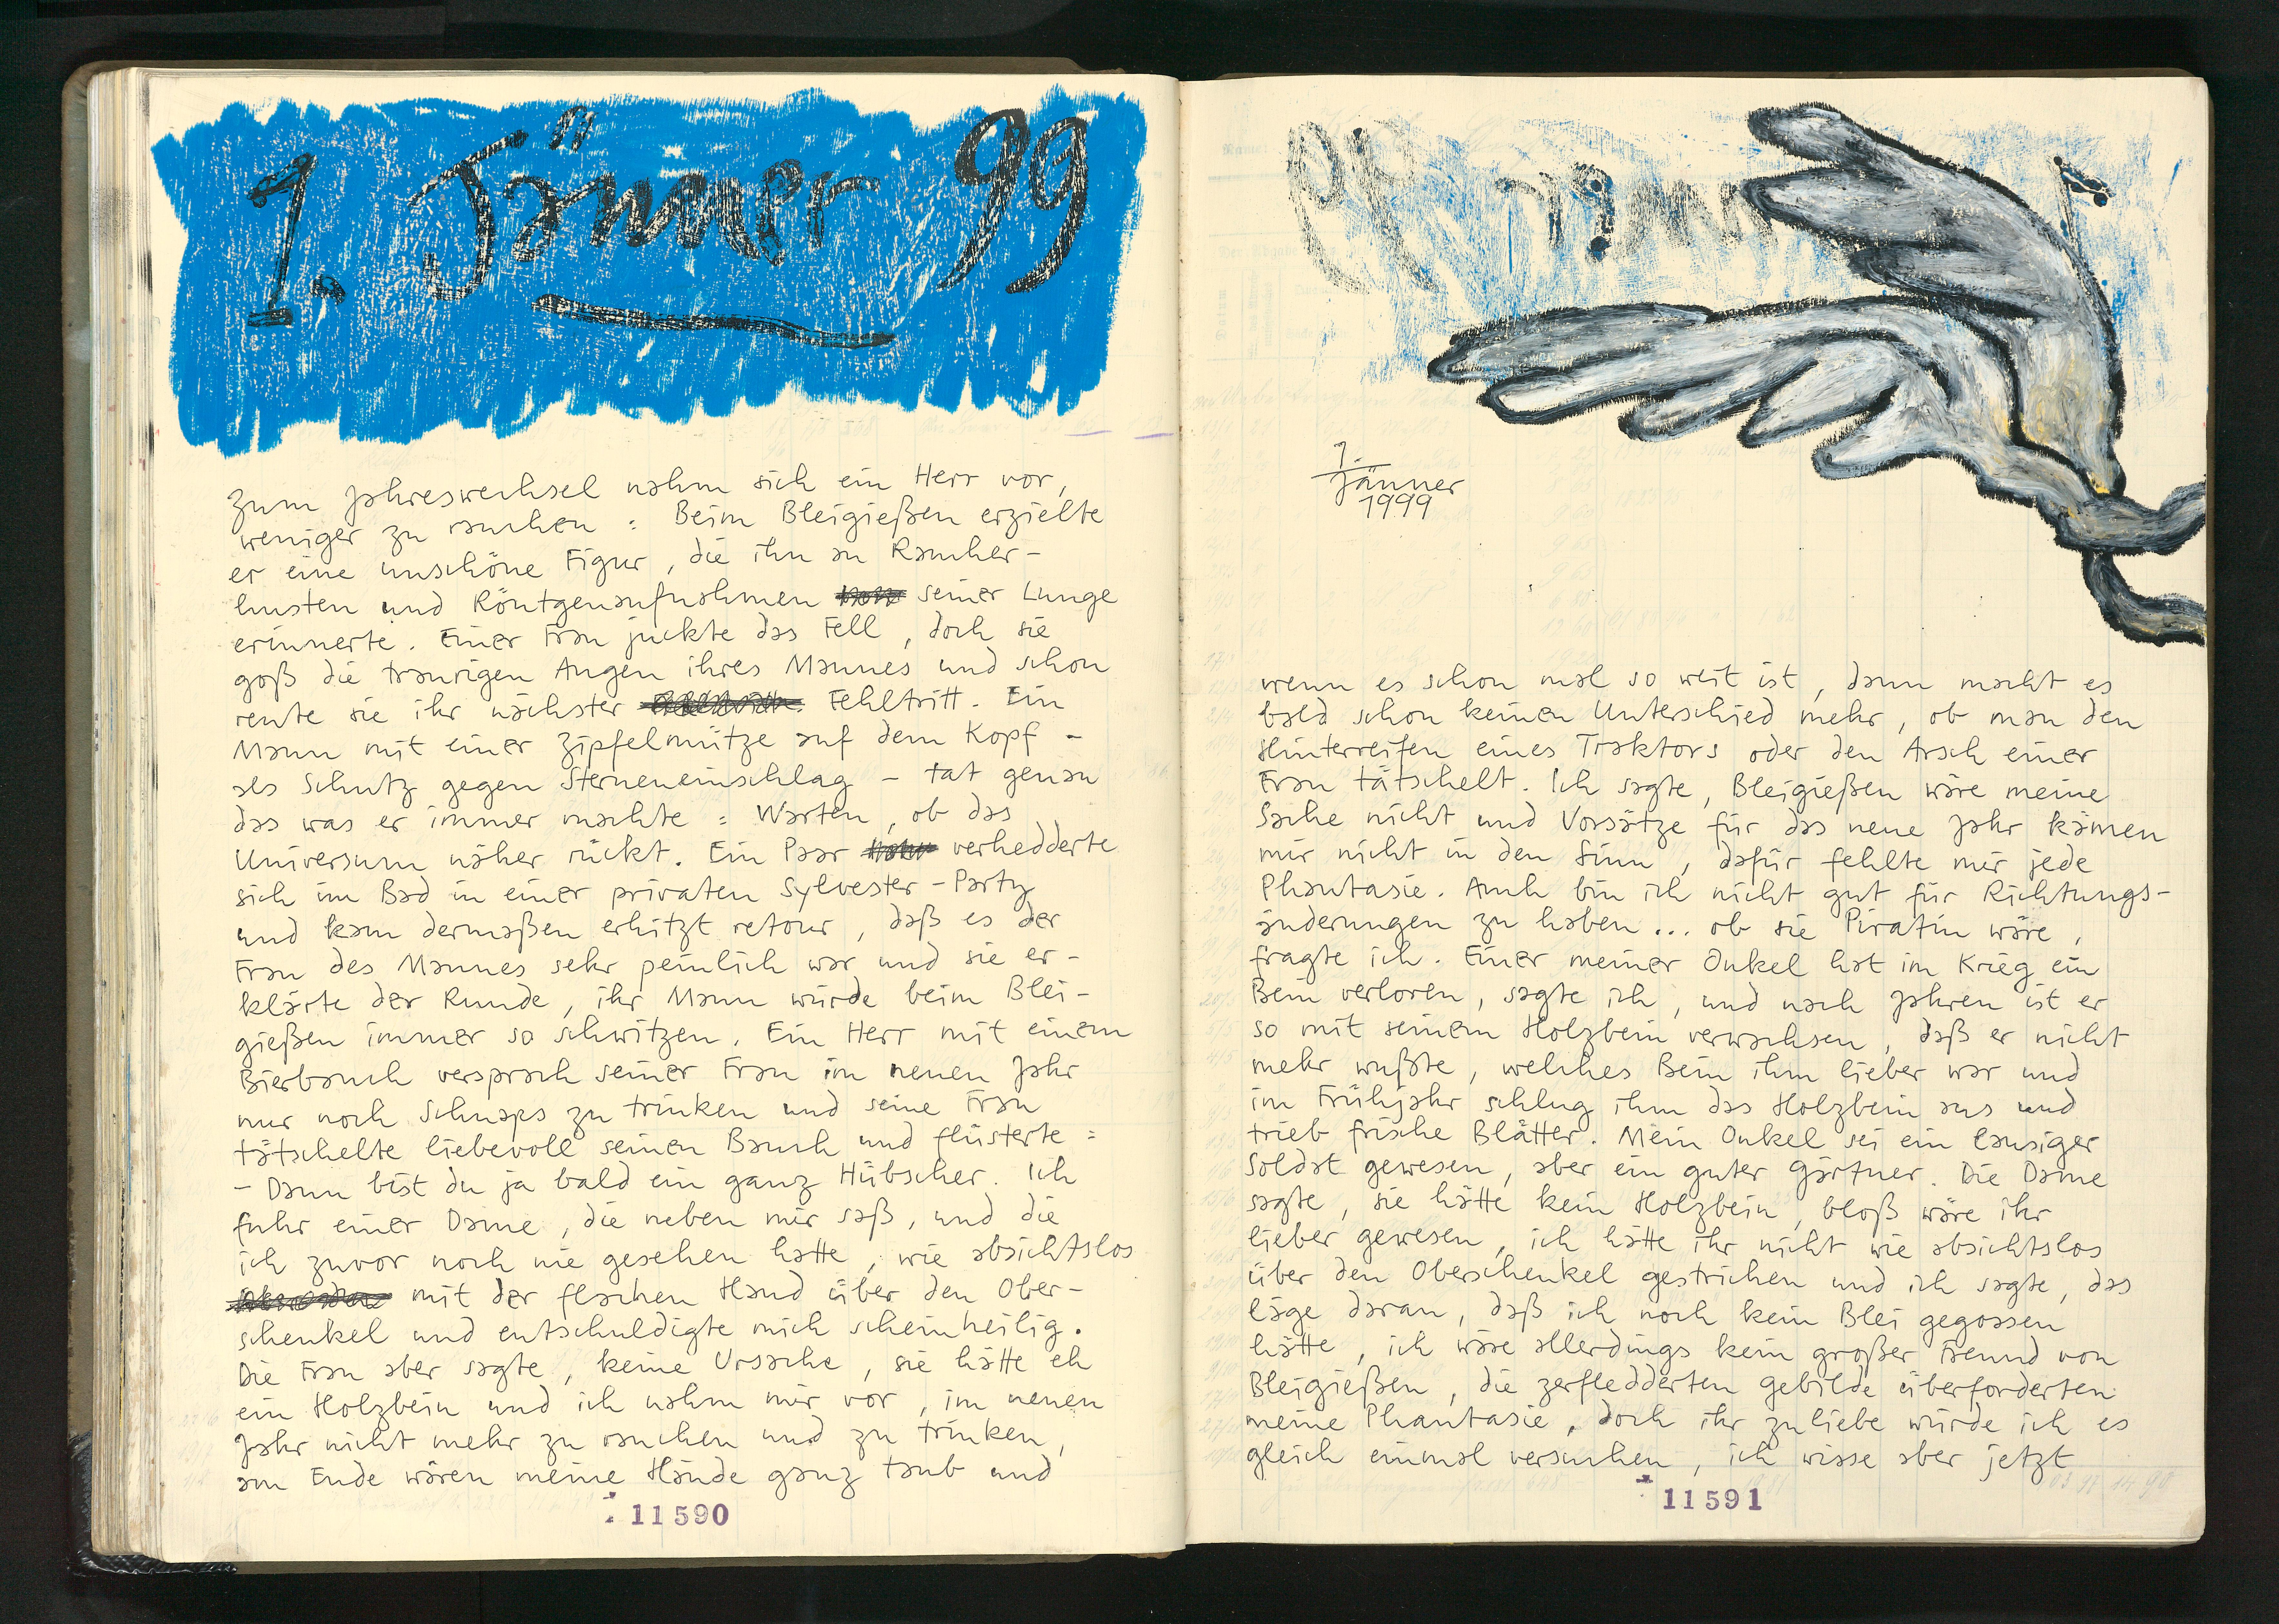 1. Jänner 99
Zum Jahreswechsel nahm sich ein Herr vor,
weniger zu rauchen : Beim Bleigießen erzielte
er eine unschöne Figur, die ihn an Raucher-
husten und Röntgenaufnahmen seiner Lunge
erinnerte. Einer Frau juckte das Fell, doch sie
goß die traurigen Augen ihres Mannes und schon
reute sie ihr nächster Fehltritt. Ein
Mann mit einer Zipfelmütze auf dem Kopf -
als Schutz gegen Sterneneinschlag - tat genau
das was er immer machte : Warten, ob das
Universum näher rückt. Ein Paar verhedderte
sich im Bad in einer privaten Sylvester-Party
und kam dermaßen erhitzt retour, daß es der
Frau des Mannes sehr peinlich war und sie er-
klärte der Runde, ihr Mann würde beim Blei-
gießen immer so schwitzen. Ein Herr mit einem
Bierbauch versprach seiner Frau im neuen Jahr
nur noch Schnaps zu trinken und seine Frau
tätschelte liebevoll seinen Bauch und flüsterte :
- Dann bist du ja bald ein ganz Hübscher. Ich
fuhr einer Dame, die neben mir saß, und die
ich zuvor noch nie gesehen hatte, wie absichtslos
mit der flachen Hand über den Ober-
schenkel und entschuldigte mich scheinheilig.
Die Frau aber sagte, keine Ursache, sie hätte eh
ein Holzbein und ich nahm mir vor, im neuen
Jahr nicht mehr zu rauchen und zu trinken,
am Ende wären meine Hände ganz taub und
11590
1.
Jänner
1999
wenn es schon mal so weit ist, dann macht es
bald schon keinen Unterschied mehr, ob man den
Hinterreifen eines Traktors oder den Arsch einer
Frau tätschelt. Ich sagte, Bleigießen wäre meine
Sache nicht und Vorsätze für das neue Jahr kämen
mir nicht in den Sinn, dafür fehlte mir jede
Phantasie. Auch bin ich nicht gut für Richtungs-
änderungen zu haben... ob sie Piratin wäre,
fragte ich. Einer meiner Onkel hat im Krieg ein
Bein verloren, sagte ich, und nach Jahren ist er
so mit seinem Holzbein verwachsen, daß er nicht
mehr wußte, welches Bein ihm lieber war und
im Frühjahr schlug ihm das Holzbein aus und
trieb frische Blätter. Mein Onkel sei ein lausiger
Soldat gewesen, aber ein guter Gärtner. Die Dame
sagte, sie hätte kein Holzbein, bloß wäre ihr
lieber gewesen, ich hätte ihr nicht wie absichtslos
über den Oberschenkel gestrichen und ich sagte, das
läge daran, daß ich noch kein Blei gegossen
hätte, ich wäre allerdings kein großer Freund von
Bleigießen, die zerfledderten Gebilde überforderten
meine Phantasie, doch ihr zuliebe würde ich es
gleich einmal versuchen, ich wisse aber jetzt
11591